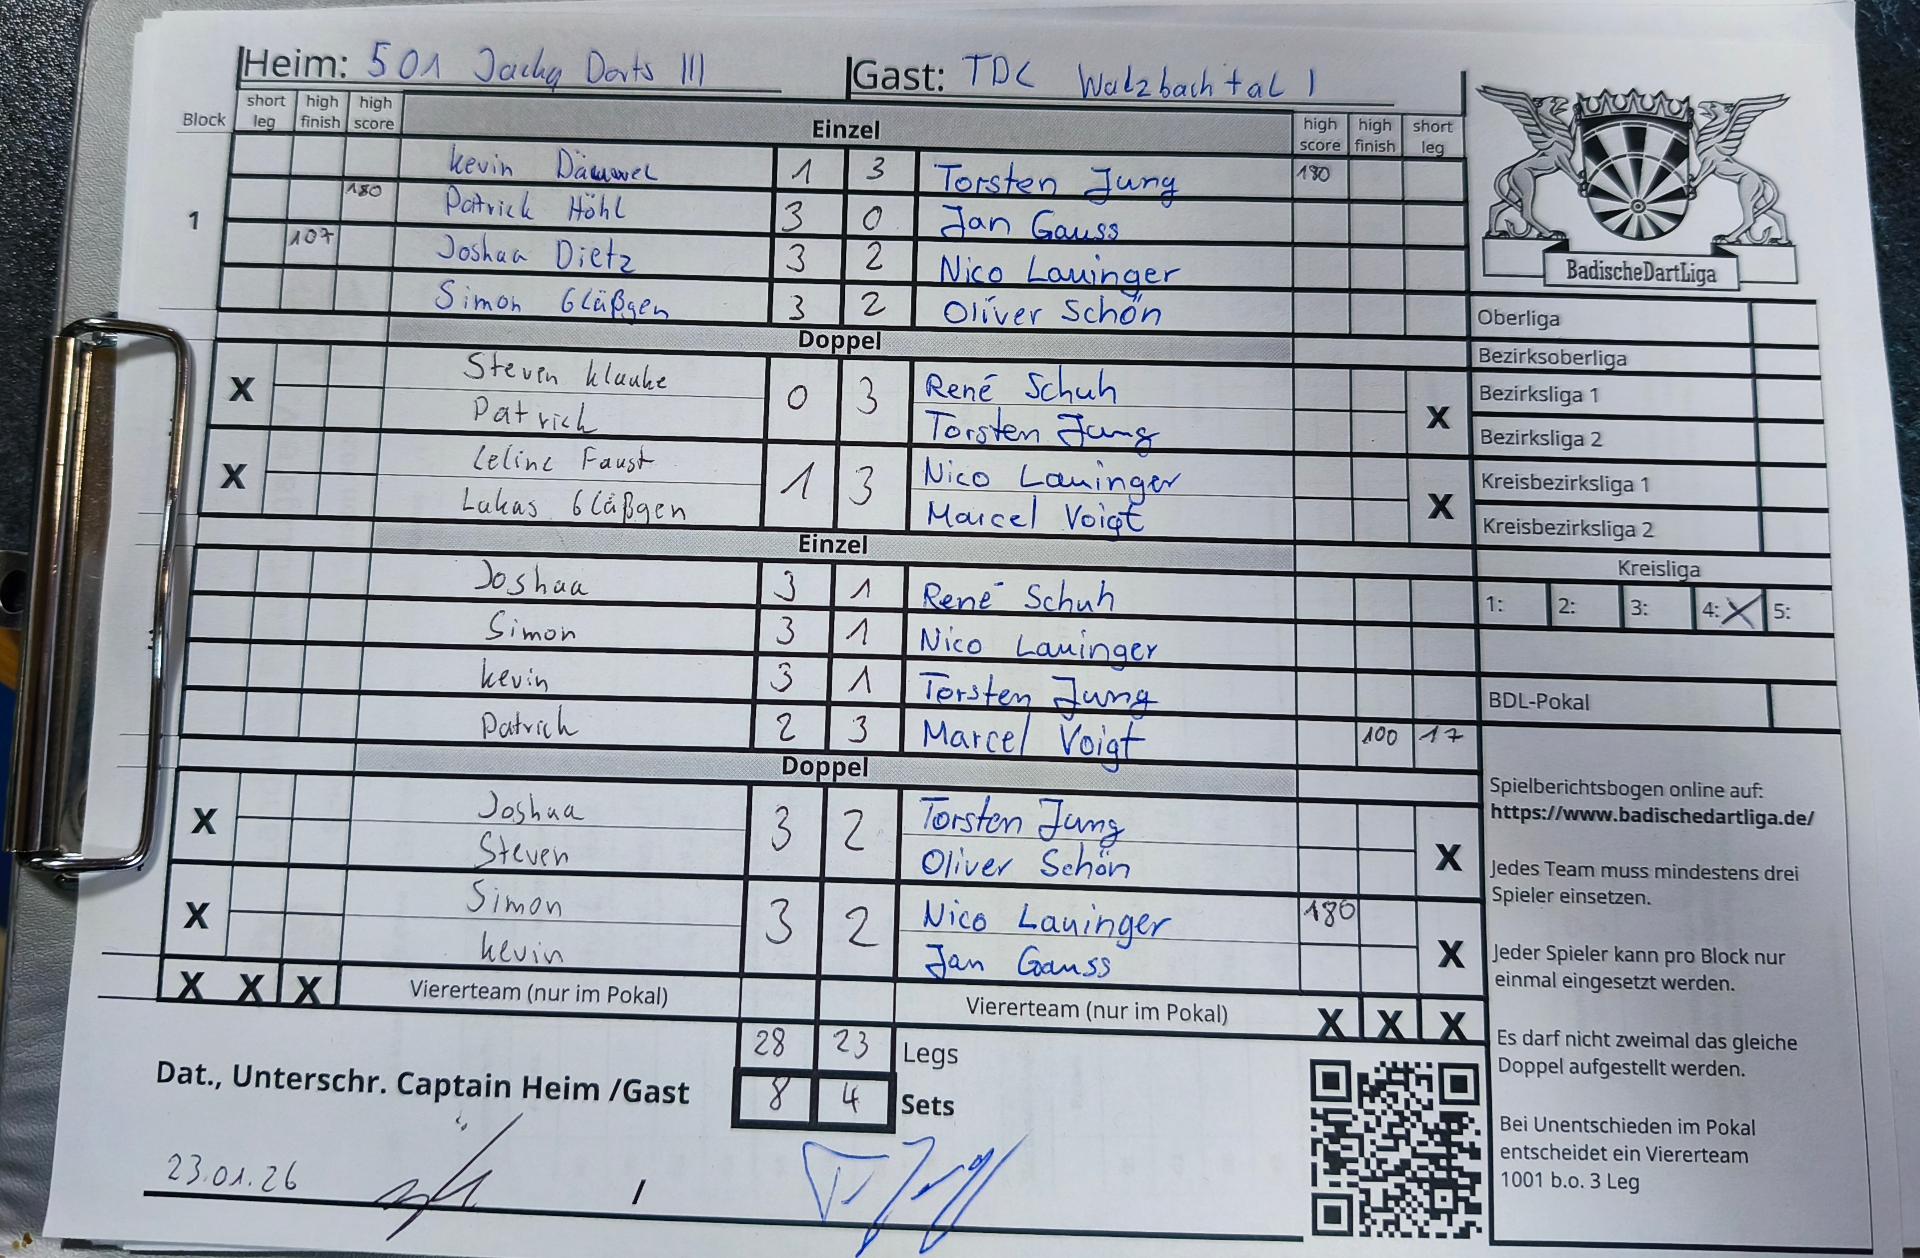 Heim: 501 Jacky Darts III Gast: TDC Walzbachtal 1
Block short leg high finish high score Einzel high score high finish short leg
Kevin Dämmel 1 3 Torsten Jung 180
1 180 Patrick Höhl 3 0 Jan Gauss
107 Joshua Dietz 3 2 Nico Lauinger
Simon Gläßgen 3 2 Oliver Schön
Doppel
X Steven Klauke 0 3 René Schuh X
Patrick Torsten Jung
X Celine Faust 1 3 Nico Lauinger X
Lukas Gläßgen Marcel Voigt
Einzel
Joshua 3 1 René Schuh
Simon 3 1 Nico Lauinger
Kevin 3 1 Torsten Jung
Patrick 2 3 Marcel Voigt 100 17
Doppel
X Joshua 3 2 Torsten Jung X
Steven Oliver Schön
X Simon 3 2 Nico Lauinger 180 X
Kevin Jan Gauss
X X X Viererteam (nur im Pokal) Viererteam (nur im Pokal) X X X
28 23 Legs
8 4 Sets
Dat., Unterschr. Captain Heim /Gast
23.01.26 /
BadischeDartLiga
Oberliga
Bezirksoberliga
Bezirksliga 1
Bezirksliga 2
Kreisbezirksliga 1
Kreisbezirksliga 2
Kreisliga
1: 2: 3: 4: X 5:
BDL-Pokal
Spielberichtsbogen online auf:
https://www.badischedartliga.de/
Jedes Team muss mindestens drei
Spieler einsetzen.
Jeder Spieler kann pro Block nur
einmal eingesetzt werden.
Es darf nicht zweimal das gleiche
Doppel aufgestellt werden.
Bei Unentschieden im Pokal
entscheidet ein Viererteam
1001 b.o. 3 Leg